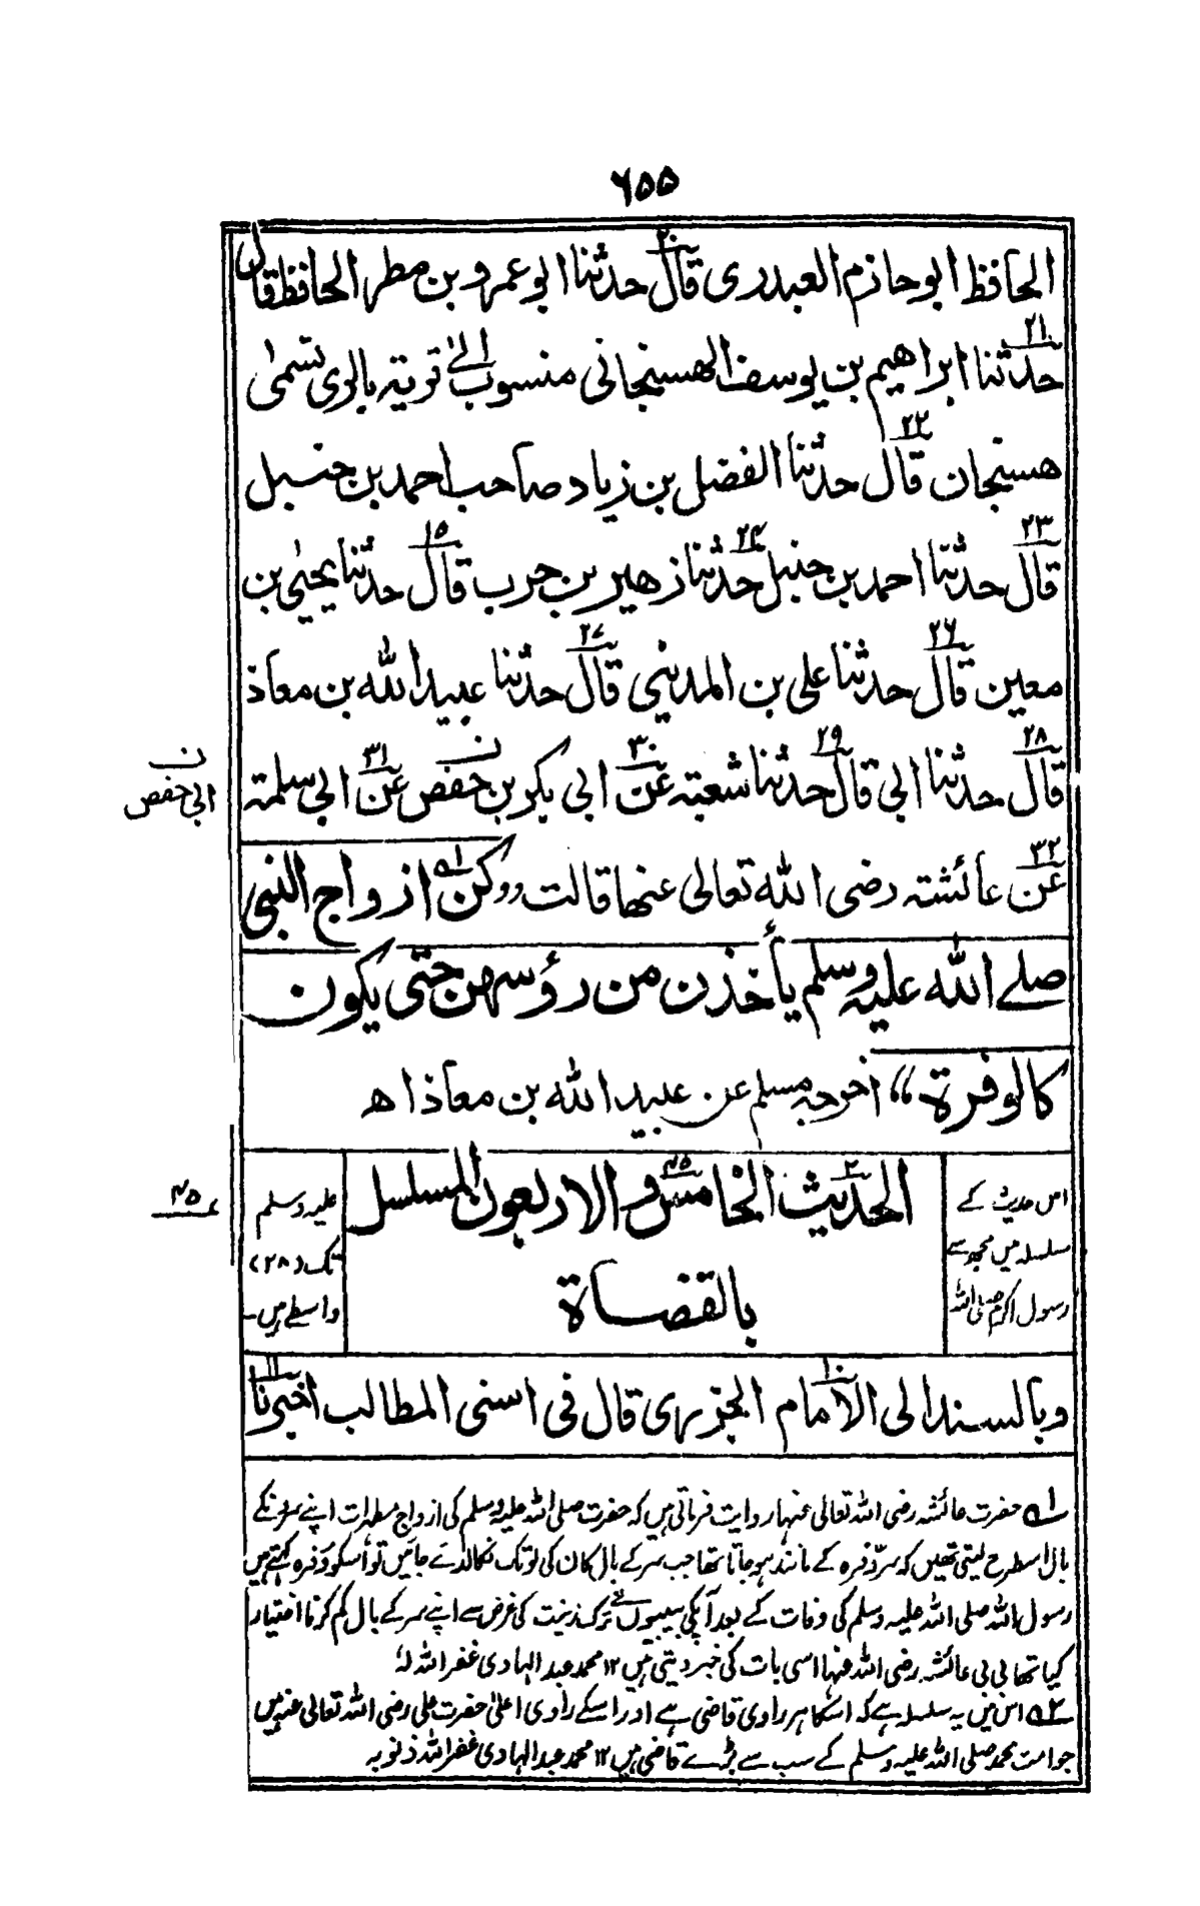 ٦٥٥
الحافظ ابو حازم العبدری قال٢٠ حدثنا ابو عمرو بن مطر الحافظ قال
٢١ حدثنا ابراهیم بن یوسف الهسنجانی منسوب الیٰ قریة بالری تسمیٰ
هسنجان قال٢٢ حدثنا الفضل بن زیاد صاحب احمد بن حنبل
قال٢٣ حدثنا احمد بن حنبل حدثنا٢٤ زهیر بن حرب قال١٥ حدثنا یحییٰ بن
معین قال٢٦ حدثنا علی بن المدینی قال٢٧ حدثنا عبید الله بن معاذ
قال٢٨ حدثنا ابی قال٢٩ حدثنا شعبة عن٣٠ ابی بکر بن حفص عن٣١ ابی سلمة
ن
ابی حفص
عن٣٢ عائشة رضی الله تعالی عنها قالت ”کن ازواج النبی
صلے الله علیه وسلم یأخذن من رؤسهن حتی یکون
کالوفرة“ اخرجه مسلم عن عبید الله بن معاذ اھ
الحدیث٢ الخامس٤٥ والاربعون المسلسل
بالقضاة
اس حدیث کے
سلسلہ میں مجھ سے
رسول اکرم صلی اللہ
علیہ وسلم
تک (٢٨)
واسطے ہیں۔
٤٥
وبالسند الی الامام١٠ الجزری قال فی اسنی المطالب اخبرنا١١
١ه حضرت عائشہ رضی اللہ تعالی عنہا روایت فرماتی ہیں کہ حضرت صلی اللہ علیہ وسلم کی ازواج مطہرات اپنے سرونکے
بال اسطرح لیتی تھیں کہ سر وفرہ کے مانند ہو جاتا تھا جب سر کے بال کان کی لو تک نکالدئے جائیں تو اسکو وفرہ کہتے ہیں
رسول اللہ صلی اللہ علیہ وسلم کی وفات کے بعد آپکی بیبیوں نے ترک زینت کی غرض سے اپنے سر کے بال کم کرنا اختیار
کیا تھا بی بی عائشہ رضی اللہ عنہا اسی بات کی خبر دیتی ہیں ١٢ محمد عبد الہادی غفر اللہ لہٗ
٢ه اس میں یہ سلسلہ ہے کہ اسکا ہر راوی قاضی ہے اور اسکے راوی اعلیٰ حضرت علی رضی اللہ تعالی عنہ ہیں
جو امت محمد صلی اللہ علیہ وسلم کے سب سے بڑے قاضی ہیں ١٢ محمد عبد الہادی غفر اللہ ذنوبہ